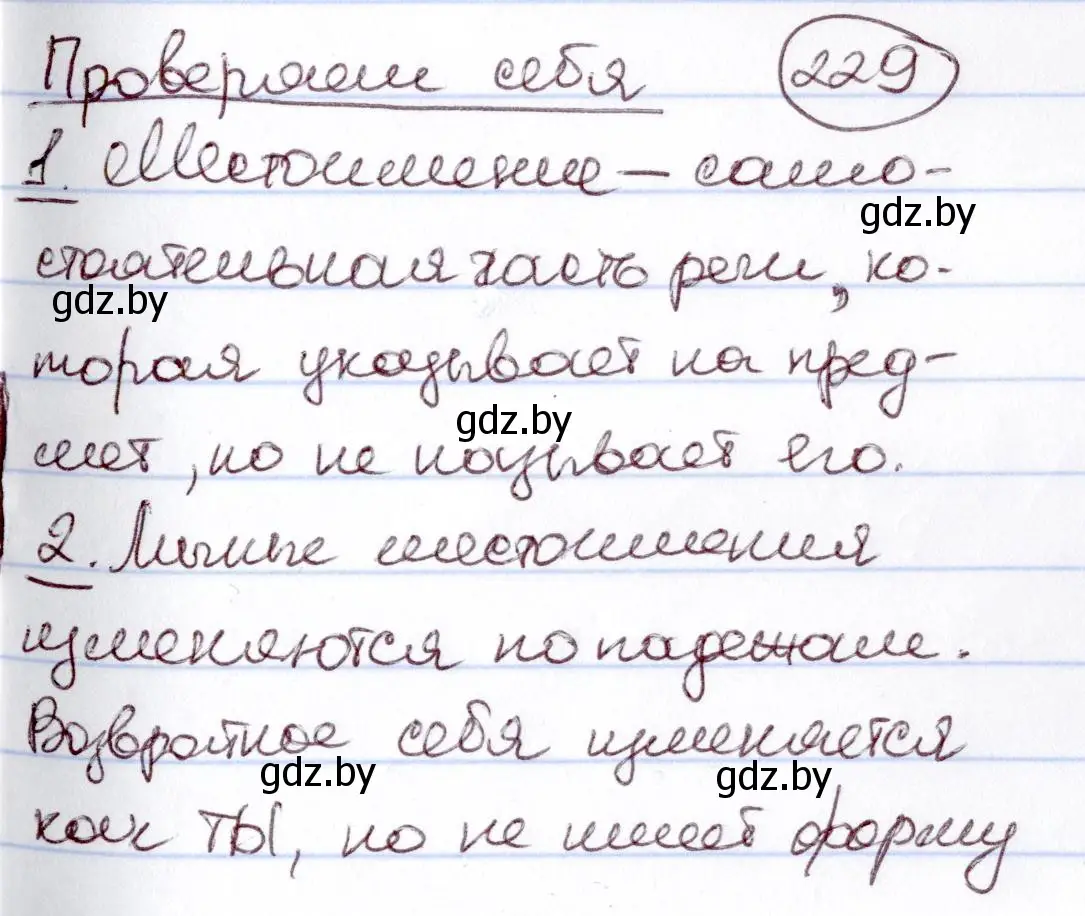 Проверяем себя 229
1. Местоимение – само-
gdz.by
стоятельная часть речи, ко-
gdz.by
торая указывает на пред-
gdz.by
мет, но не называет его.
2. Личные местоимения
изменяются по падежам.
Возвратное себя изменяется
gdz.by gdz.by
как ТЫ, но не имеет форму